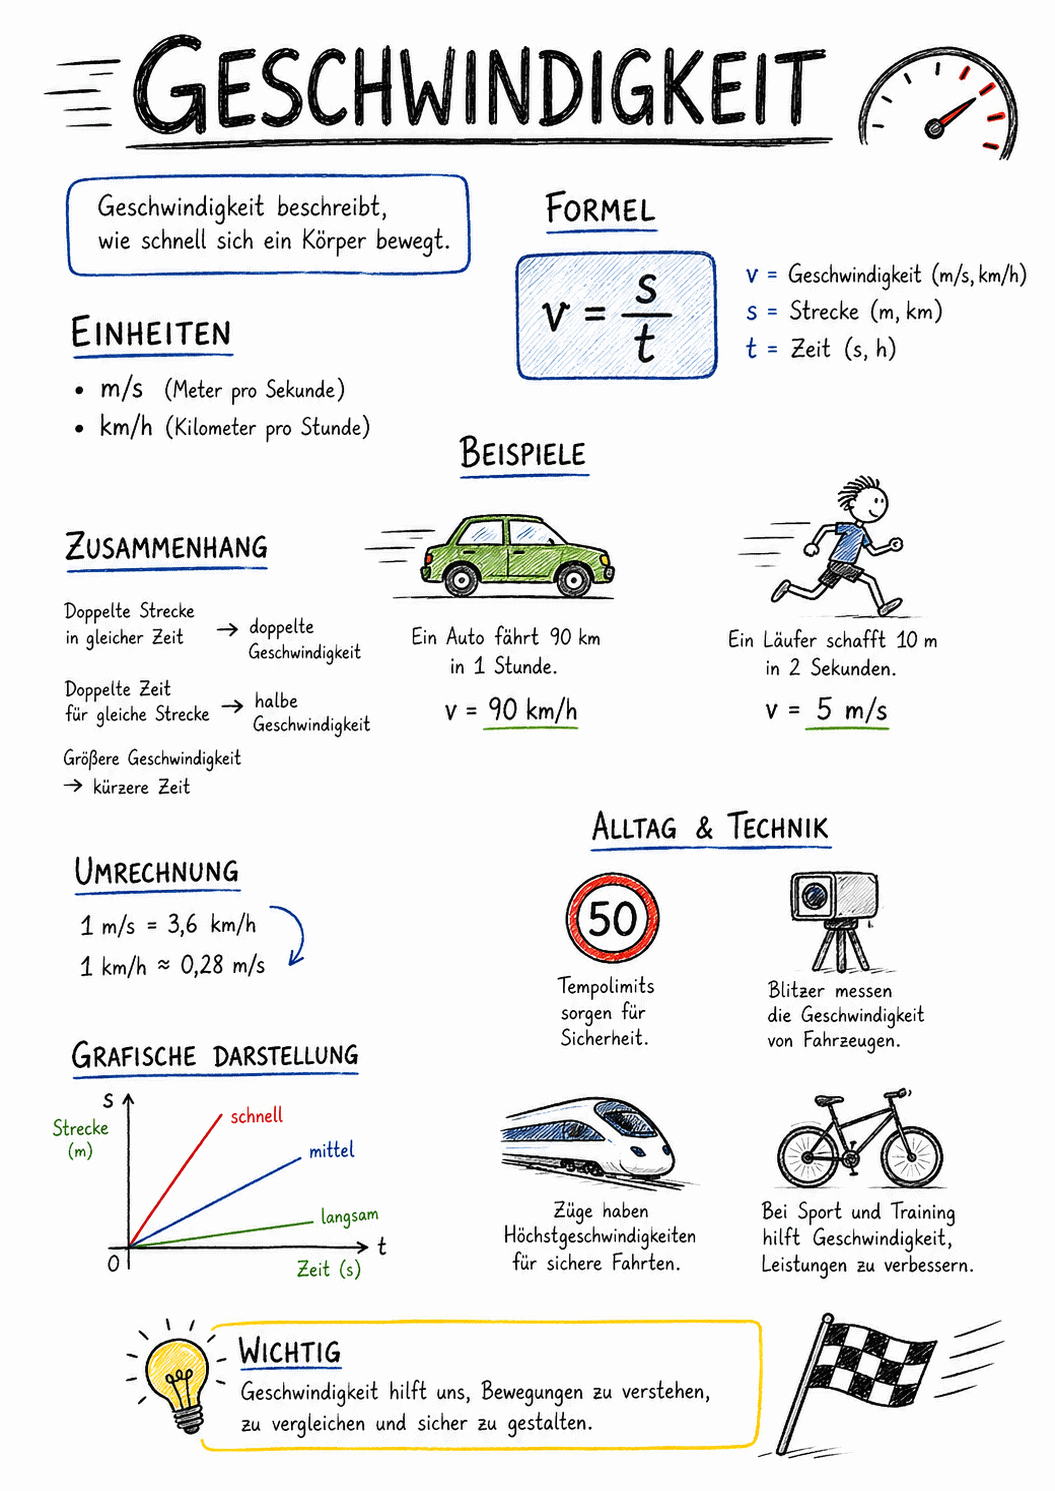 GESCHWINDIGKEIT
Geschwindigkeit beschreibt,
wie schnell sich ein Körper bewegt.
FORMEL
v = s/t
v = Geschwindigkeit (m/s, km/h)
s = Strecke (m, km)
t = Zeit (s, h)
EINHEITEN
• m/s (Meter pro Sekunde)
• km/h (Kilometer pro Stunde)
BEISPIELE
Ein Auto fährt 90 km
in 1 Stunde.
v = 90 km/h
Ein Läufer schafft 10 m
in 2 Sekunden.
v = 5 m/s
ZUSAMMENHANG
Doppelte Strecke
in gleicher Zeit → doppelte
Geschwindigkeit
Doppelte Zeit
für gleiche Strecke → halbe
Geschwindigkeit
Größere Geschwindigkeit
→ kürzere Zeit
UMRECHNUNG
1 m/s = 3,6 km/h
1 km/h ≈ 0,28 m/s
ALLTAG & TECHNIK
50
Tempolimits
sorgen für
Sicherheit.
Blitzer messen
die Geschwindigkeit
von Fahrzeugen.
Züge haben
Höchstgeschwindigkeiten
für sichere Fahrten.
Bei Sport und Training
hilft Geschwindigkeit,
Leistungen zu verbessern.
GRAFISCHE DARSTELLUNG
s
Strecke
(m)
schnell
mittel
langsam
t
0
Zeit (s)
WICHTIG
Geschwindigkeit hilft uns, Bewegungen zu verstehen,
zu vergleichen und sicher zu gestalten.